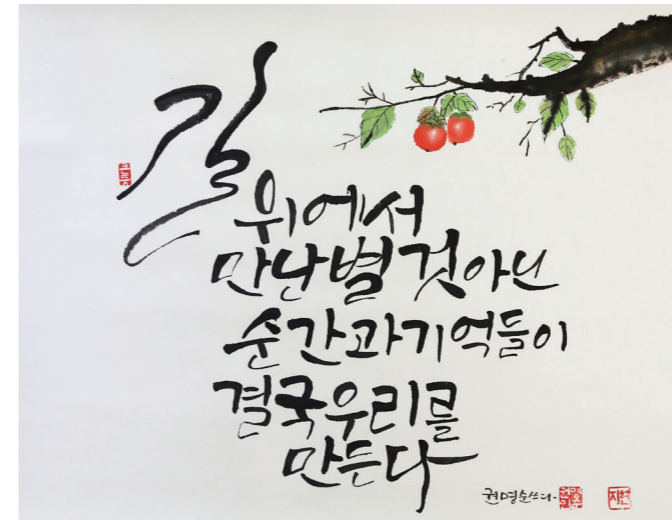 길
위에서
만난별것아닌
순간과기억들이
결국우리를
만든다
권명순쓰다.